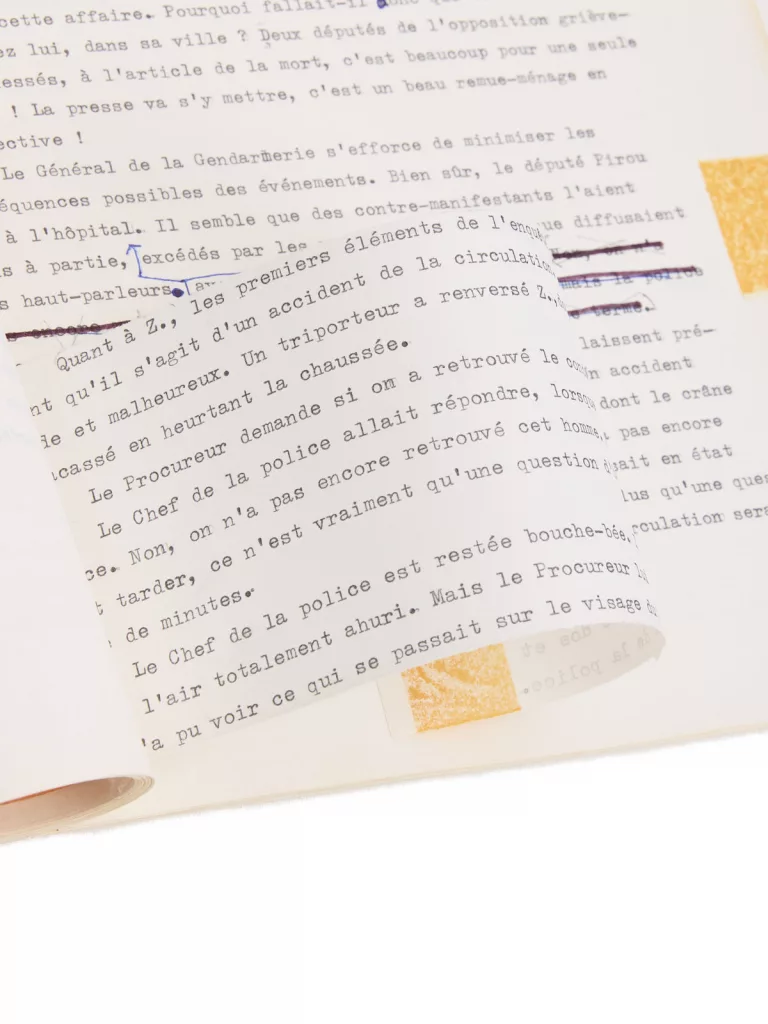 cette affaire. Pourquoi fallait-il
lui, dans sa ville ? Deux députés de l'opposition griève-
à l'article de la mort, c'est beaucoup pour une seule
! La presse va s'y mettre, c'est un beau remue-ménage en
ective !
Le Général de la Gendarmerie s'efforce de minimiser les
équences possibles des événements. Bien sûr, le député Pirou
à l'hôpital. Il semble que des contre-manifestants l'aient
à partie, excédés par les
ue diffusaient
haut-parleurs.
mais la police
encore
terme.
Quant à Z., les premiers éléments de l'enqu
nt qu'il s'agit d'un accident de la circulation
ie et malheureux. Un triporteur a renversé Z.,
acassé en heurtant la chaussée.
Le Procureur demande si on a retrouvé le
Le Chef de la police allait répondre, lorsqu
ce. Non, on n'a pas encore retrouvé cet homme,
tarder, ce n'est vraiment qu'une question
de minutes.
Le Chef de la police est restée bouche-bée,
l'air totalement ahuri. Mais le Procureur
'a pu voir ce qui se passait sur le visage
laissent pré-
accident
dont le crâne
pas encore
sait en état
lus qu'une ques
culation sera